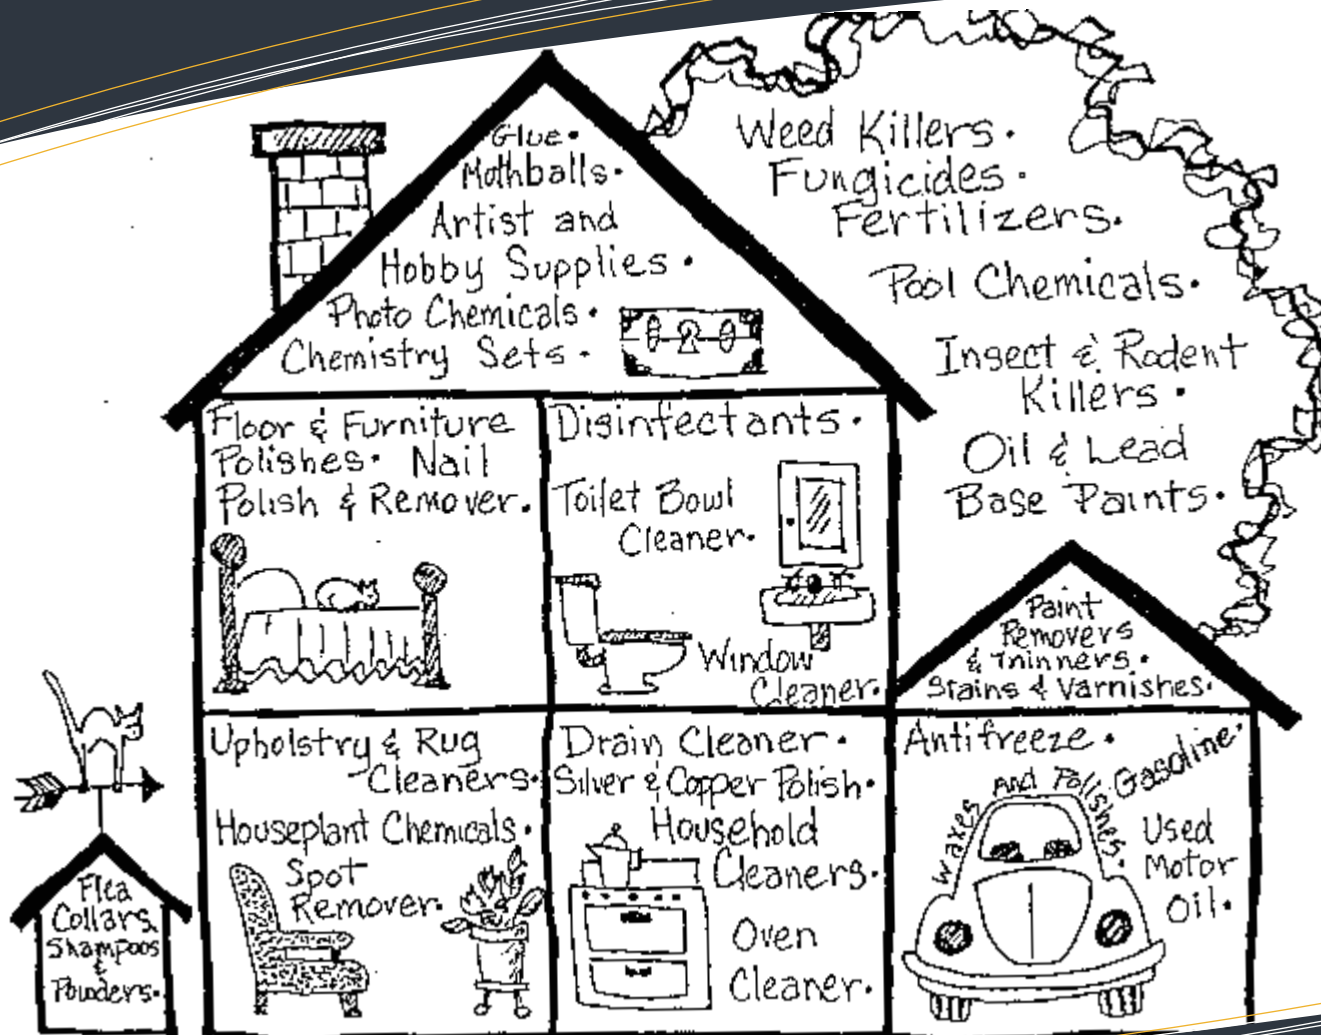 Glue.
Mothballs.
Artist and
Hobby Supplies.
Photo Chemicals.
Chemistry Sets.
Weed Killers.
Fungicides.
Fertilizers.
Pool Chemicals.
Insect & Rodent
Killers.
Oil & Lead
Base Paints.
Floor & Furniture
Polishes. Nail
Polish & Remover.
Disinfectants.
Toilet Bowl
Cleaner.
Window
Cleaner.
Paint
Removers
& Thinners.
Stains & Varnishes.
Flea
Collars
Shampoos
&
Powders.
Upholstry & Rug
Cleaners.
Houseplant Chemicals.
Spot
Remover.
Drain Cleaner.
Silver & Copper Polish.
Household
Cleaners.
Oven
Cleaner.
Antifreeze.
Waxes And Polishes.
Gasoline.
Used
Motor
Oil.